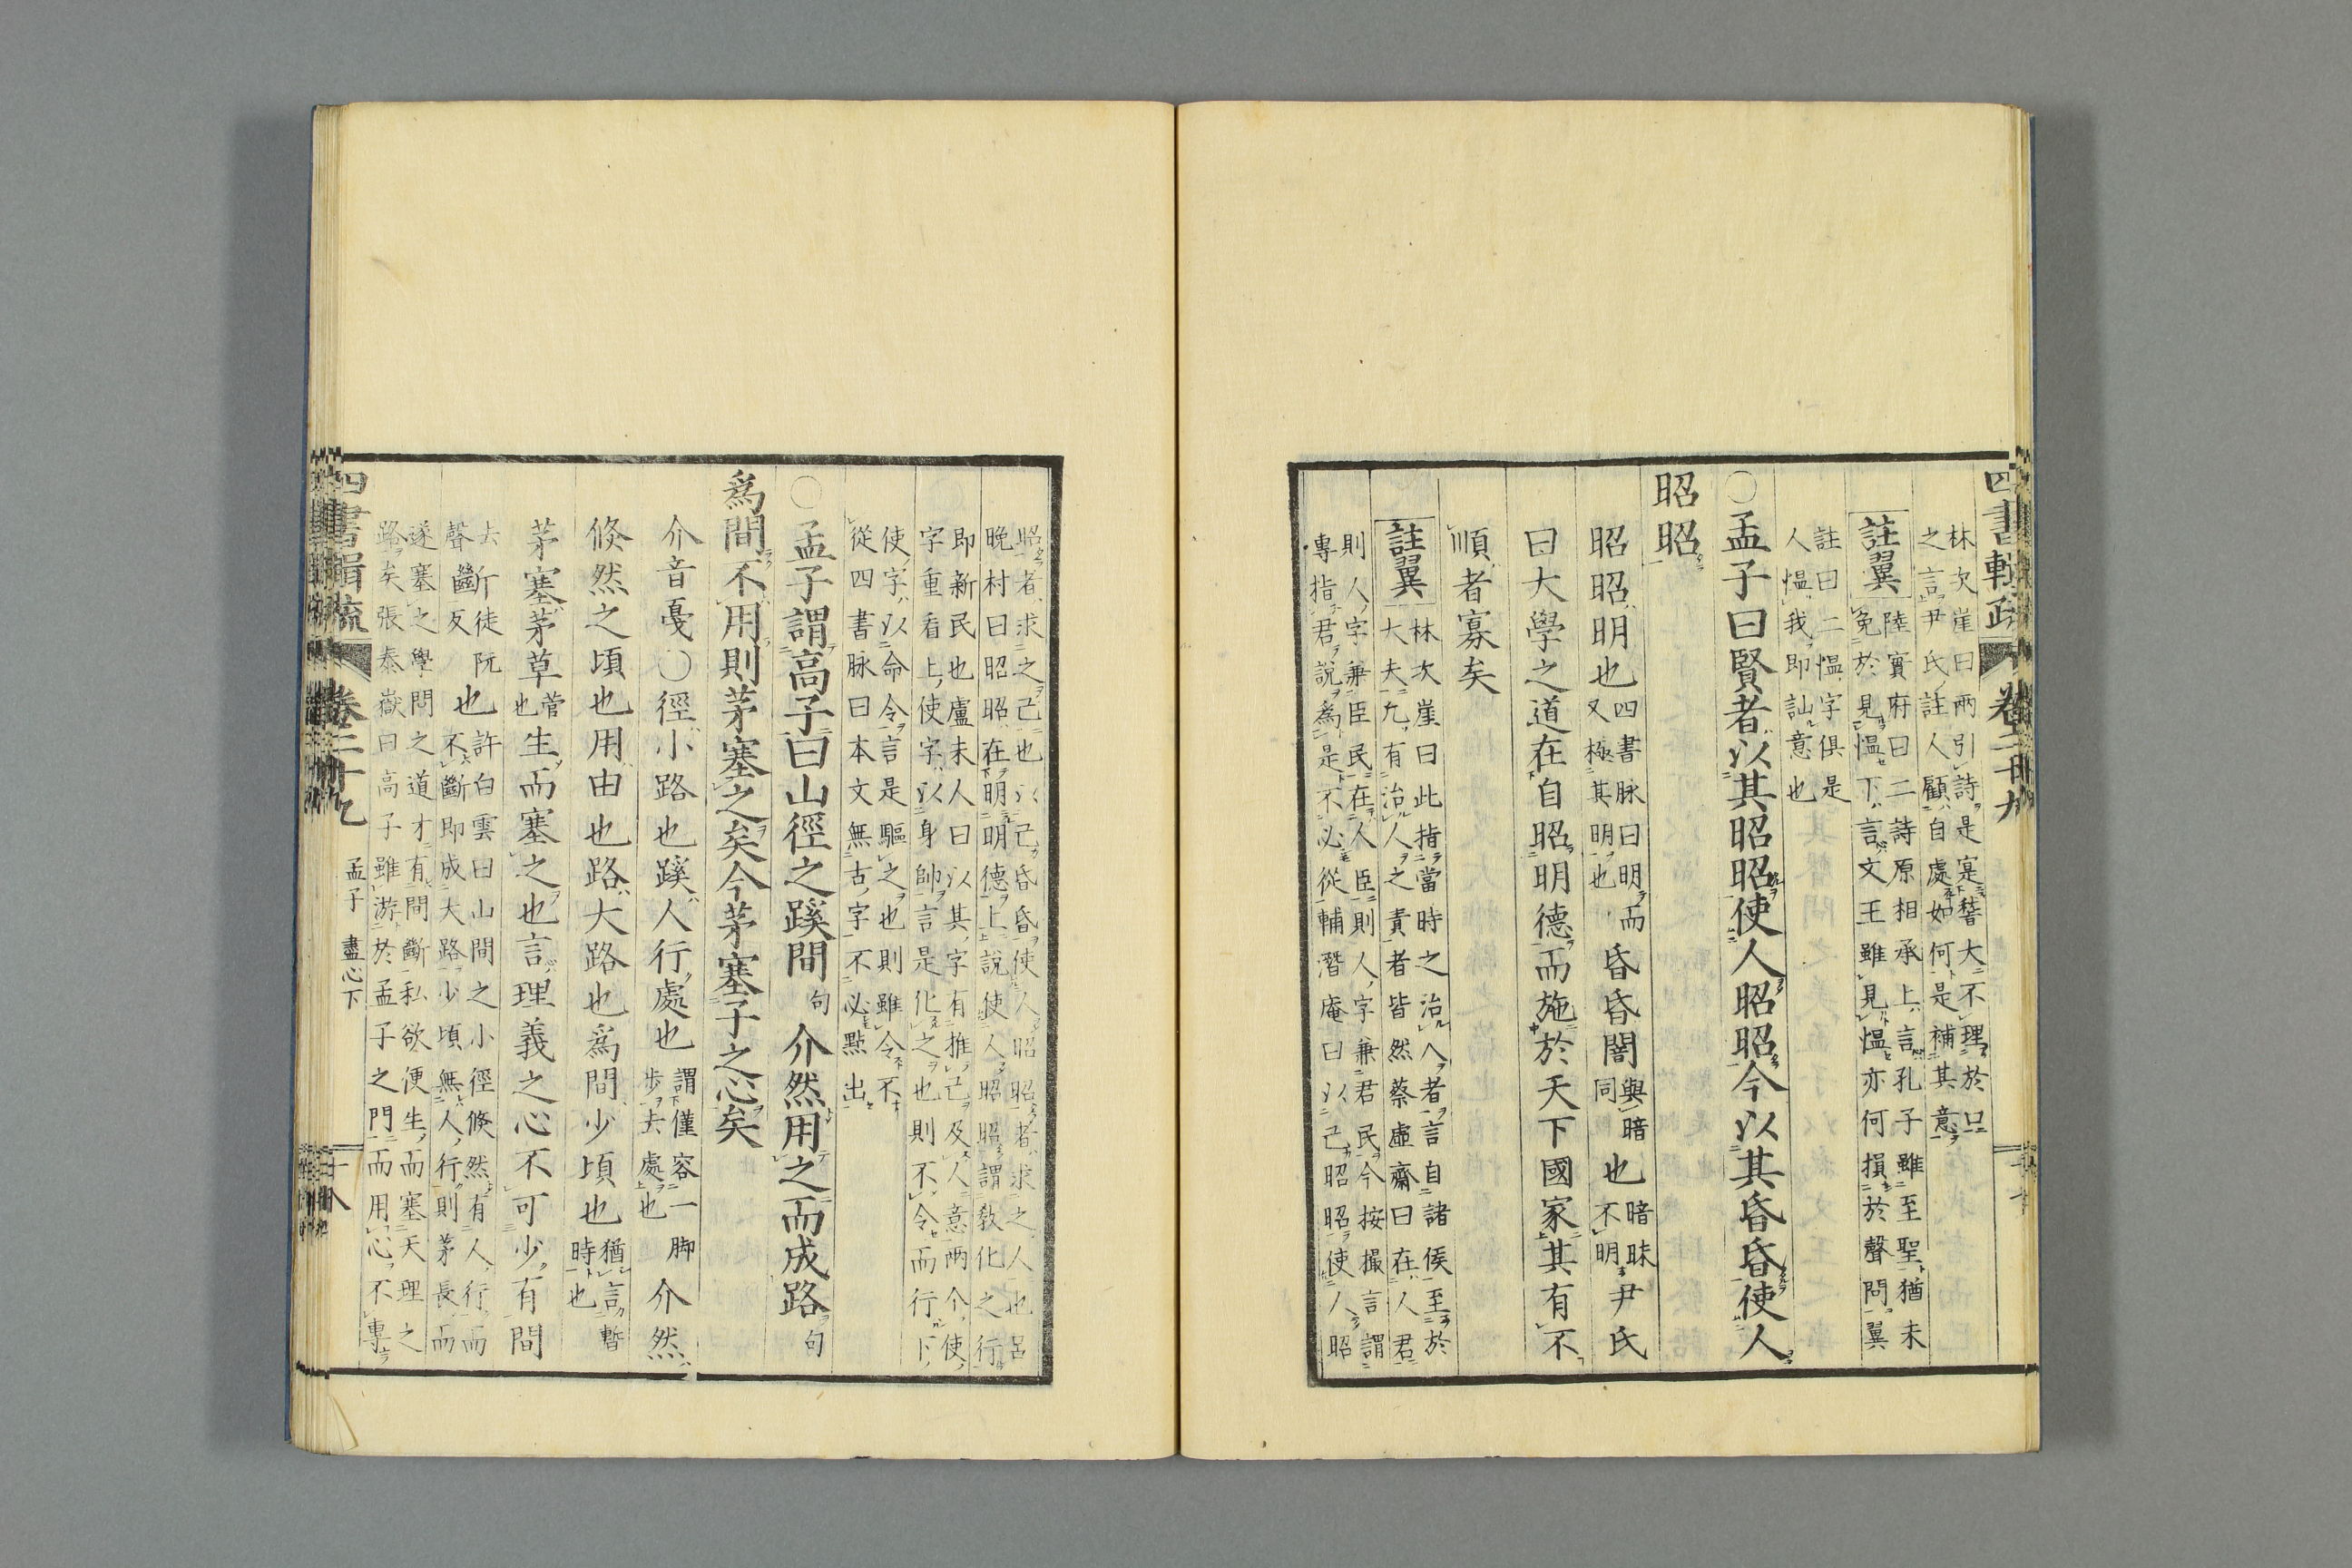 林次崖曰兩引詩是寔暬大不理於口
之言尹氏註人顧自處如何是補其意
註翼
陸實府曰二詩原相承上言孔子雖至聖猶未
免於見慍下言文王雖見慍亦何損於聲問翼
註曰二慍字俱是
人慍我即訕意也
○孟子曰賢者以其昭昭使人昭昭今以其昏昏使人
昭昭
昭昭明也
四書脉曰明而
又極其明也
昏昏闇
與暗
同
也
暗昧
不明
尹氏
曰大學之道在自昭明德而施於天下國家其有不
順者寡矣
註翼
林次崖曰此指當時之治人者言自諸侯至於
大夫凡有治人之責者皆然蔡虛齋曰在人君
則人字兼臣民在人臣則人字兼君民今按撮言謂
專指君說為是不必從輔潛庵曰以己昭昭使人昭
昭者求之己也以己昏昏使人昭昭者求之人也呂
晚村曰昭昭在明明德上說使人昭昭謂教化之行
即新民也盧未人曰以其字有推己及人意兩个使
字重看上使字以身帥言是化之也則不令而行下
使字以命令言是驅之也則雖令不
從四書脉曰本文無古字不必點出
○孟子謂高子曰山徑之蹊間
句
介然用之而成路
句
為間不用則茅塞之矣今茅塞子之心矣
介音戞○徑小路也蹊人行處也
謂僅容一脚
步去處也
介然
倐然之頃也用由也路大路也為間少頃也
猶言暫
時也
茅塞茅草
菅
也
生而塞之也言理義之心不可少有間
去
聲
斷
徒阮
反
也
許白雲曰山間之小徑倐然有人行而
不斷即成大路少頃無人行則茅長而
遂塞之學問之道才有間斷私欲便生而塞天理之
路矣張泰嶽曰高子雖游於孟子之門而用心不專
孟子 盡心下